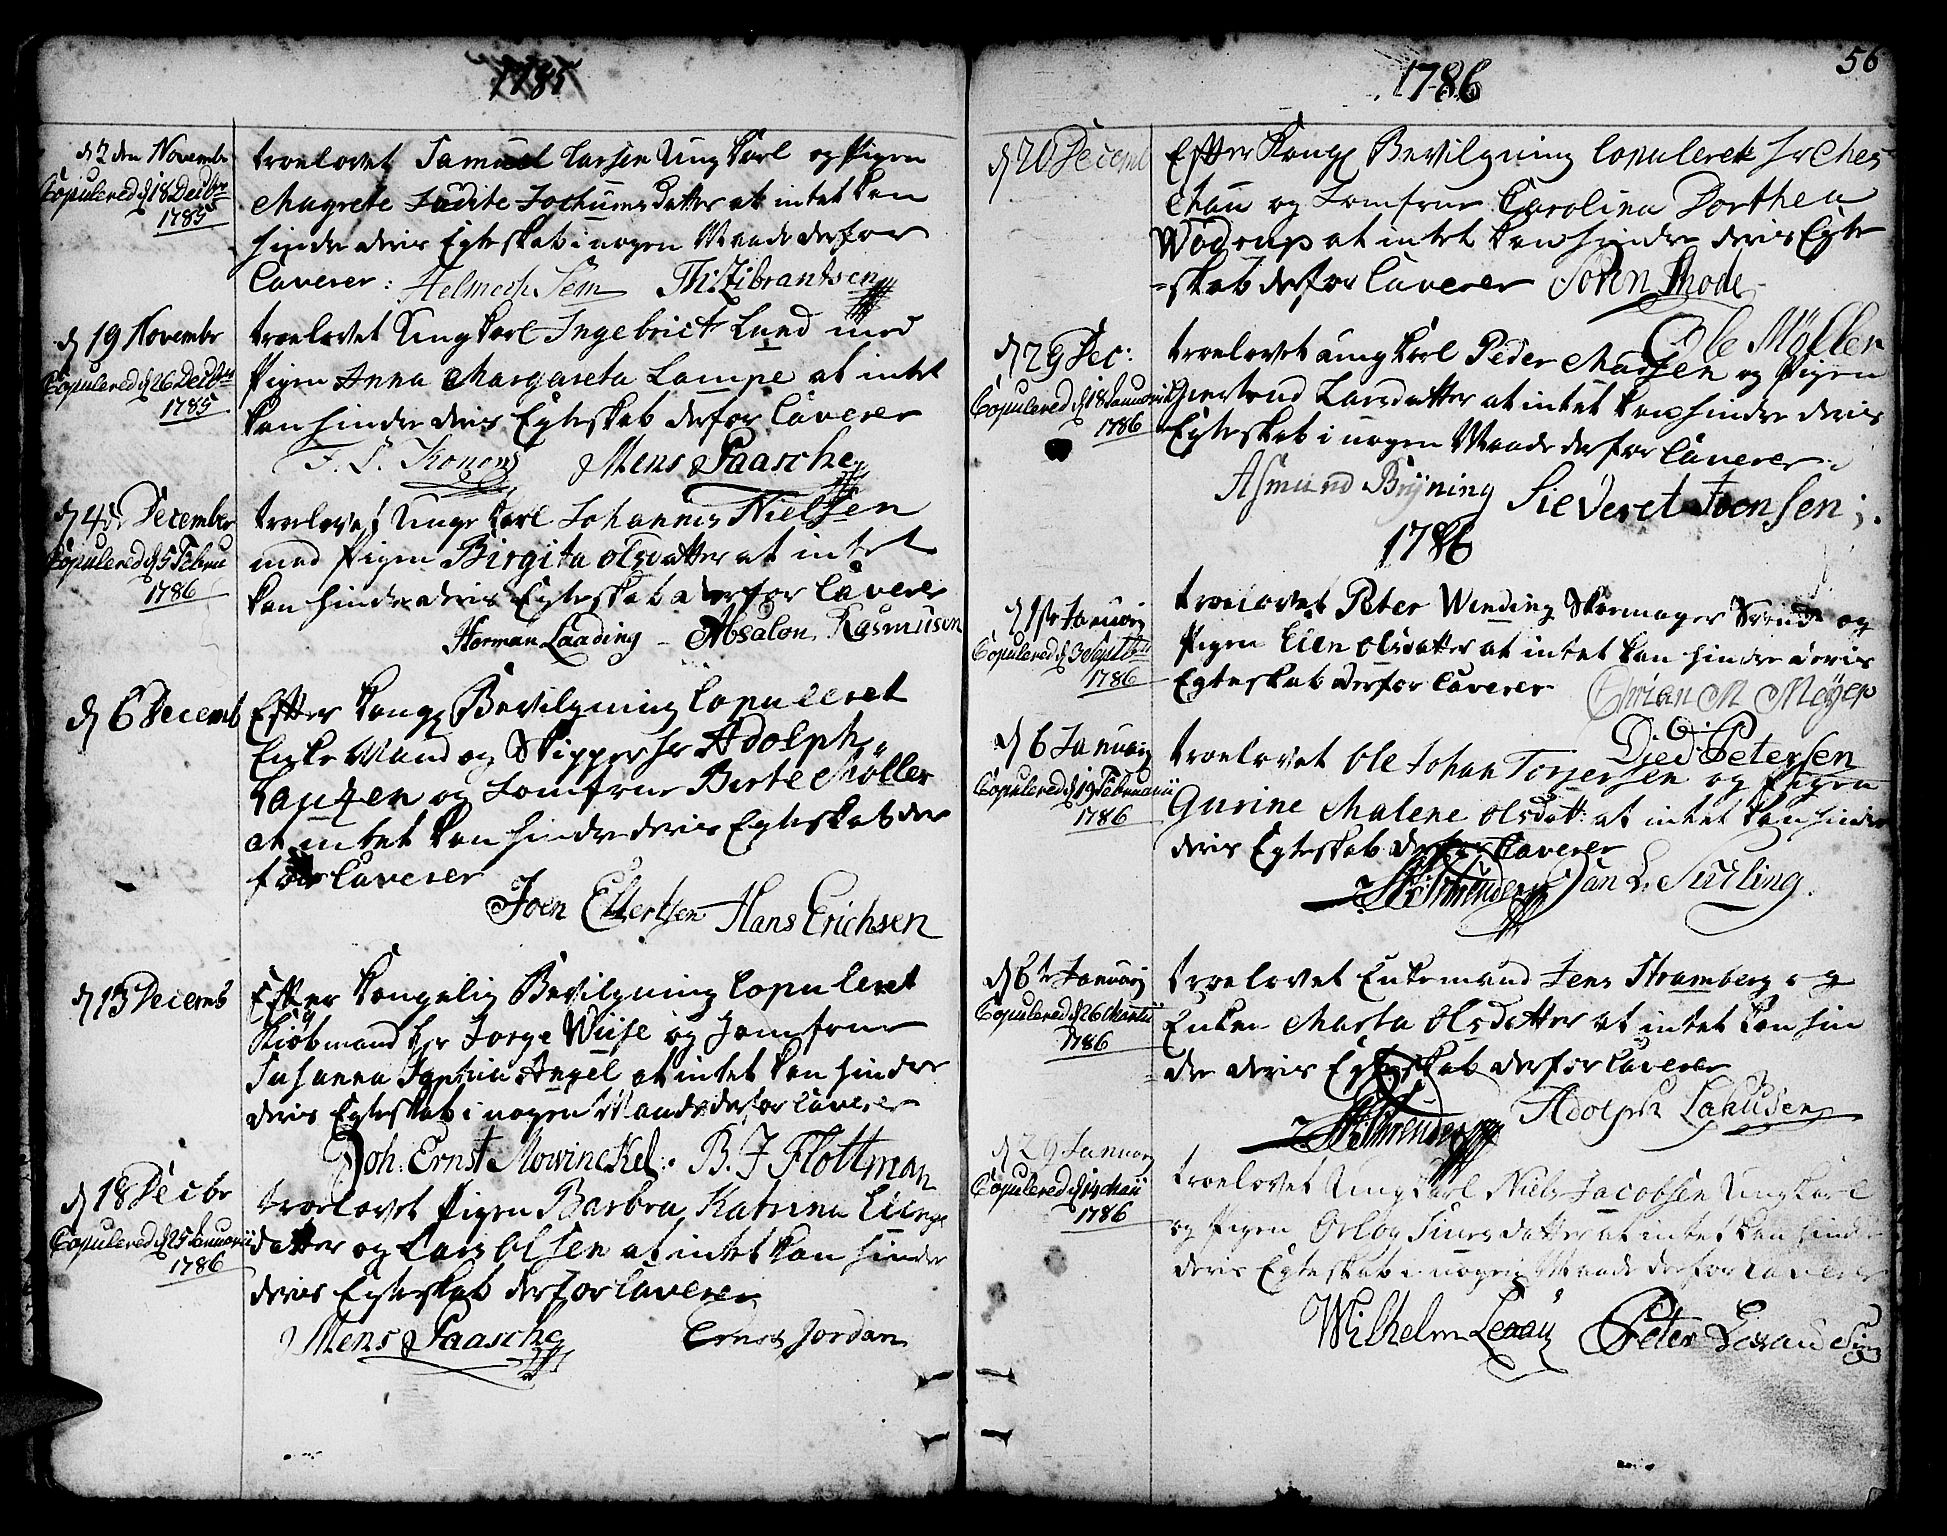 1785
d 2 den Novembr
Copulered d 18 Decbr
1785
troelovet Samuel Larsen Ung Karl og Pigen
Magrete Judite Jochumsdatter at intet kan
hindre deris Egteskab i nogen Maade derfor
Caverer: Helmech Sem Th: Zibrantsen
d 19 Novembr
Copulered d 26 Decbr
1785
troelovet Ung Karl Ingebrict Lund med
Pigen Anna Margareta Lampe at intet
kan hindre deris Egteskab derfor Caverer
Mens Paasche
d 4de December
Copulered d 5 Febru
1786
troelovet Unge Karl Johannes Nielsen
med Pigen Birgita Olsdatter at intet
kan hindre deris Egteskab derfor Caverer
Herman Laading Absalon Rasmusen
d 6 Decemb
Efter Kongl Bevilgning Copuleret
Enke Mand og Skipper Hr Adolph
Lauhen og Jomfrue Birte Møller
at intet kan hindre deris Egteskab der
for Caverer
Joen Ellertsen Hans Erichsen
d 15 Decemb
Efter Kongelig Bevilgning Copuleret
Kiøbmand Hr Jørge Wiise og Jomfrue
Susanna Sophia Angel at intet kan hindre
deris Egteskab i nogen Maade derfor Caverer
Joh: Ernst Mowinckel. B. J Flottman
d 18 Decbr
Copulered d 25 Januarii
1786
troelovet Pigen Barbra Katrina Ellings
datter og Lars Olsen at intet kan hinder
deris Egteskab derfor Caverer
Mens Paasche Ernst Jordan
56
1786
d 20 Decemb
Efter Kongl Bevilgning Copuleret Hr Ches
Chau og Jomfrue Carolina Dorthea
Wodrup at intet kan hindre deris Egte
-skab derfor Caverer John Rhode
Ole Møller
d 29 Dec:
Copulered d 18 Januarii
1786
troelovet ung Karl Peder Madsen og Pigen
Giertrud Larsdatter at intet kan hindre deris
Egteskab i nogen Maade derfor Caverer:
Asmund Bryning Sieveret Joensen;.
1786
d 1ste Januarij
Copulered d 3 Septbr
1786
troelovet Peter Winding Skomager Svend og
Pigen Elen Olsdatter at intet kan hindre deris
Egteskab derfor Caverer Chrian M Meyer
Died: Petersen
d 6 Januarij
Copulered d 19 Februarii
1786
troelovet Ole Johan Torgersen og Pigen
Gurine Malene Olsdatt: at intet kan hindre
deris Egteskab derfor Caverer
Jan L. Surling.
d 6te Januarij
Copulered d 26 Martii
1786
troelovet Enkemand Jens Stramberg og
Enken Marta Olsdatter at intet kan hin
dre deris Egteskab derfor Caverer
Adolph Lahusen
d 29 Januarij
Copulered d 14 Maii
1786
troelovet Ung Karl Niels Jacobsen Ung Karl
og Pigen Orlog Simensdatter at intet kan hindre
deris Egteskab i nogen Maade derfor Caverer
Wilhelm Lexau Peter